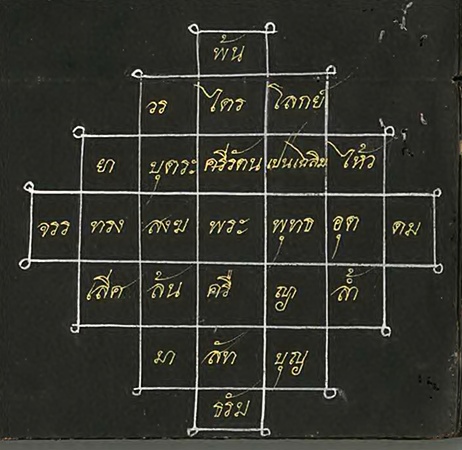 พัน
วร ไตร โลกย์
ยา บุตระ ศรีรัตน เปนเฉลิม ไห้ว
จรร ทรง สงฆ พระ พุทธ อุต ดม
เลีศ ล้น ศรี ญา ล้ำ
มา สัท บุญ
ธรัม